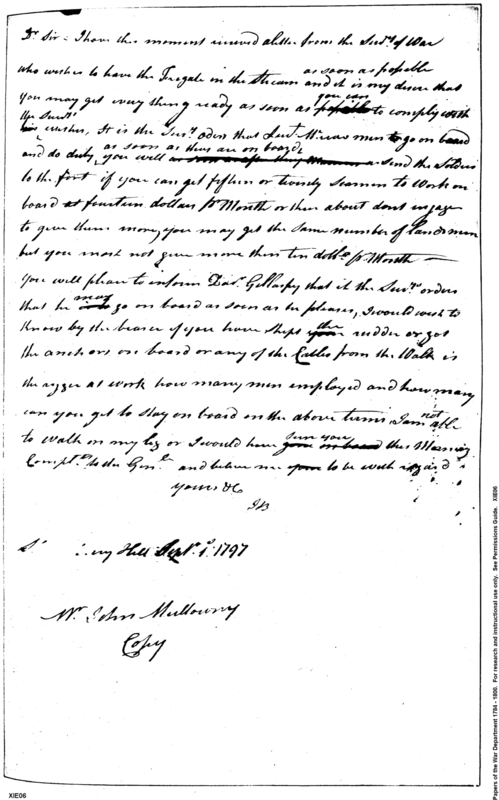 Dr Sir I have this moment received a letter from the Secry of War
who wishes to have the Frigate in the Stream as soon as possible and it is my desire that
you may get every thing ready as soon as you can to comply with
the Secrys wishes, It is the Secrys orders that Lieut men to go on board
and do duty, as soon as they are on board you will send the Soldiers
to the fort if you can get fifteen or twenty Seamen to work on
board at fourteen dollars pr Month or there about dont engage
to give them more, you may get the same number of landsmen
but you must not give more then ten dolls pr Month
You will please to inform Doctr Gillaspy that it the Secrys orders
that he may go on board as soon as he pleases, I would wish to
know by the bearer if you have shipt the rudder or got
the anchors on board or any of the Cables from the Walk is
the rigger at work how many men employed and how many
can you get to stay on board on the above terms I am not able
to walk on my leg or I would have seen you this Morning
Complts to the Genl and believe me to be with regard
yours &c
JB
Hill Sept 1 1797
Mr John Mullowny
Copy
XIE06
Papers of the War Department 1784 - 1800. For research and instructional use only. See Permissions Guide. XIE06